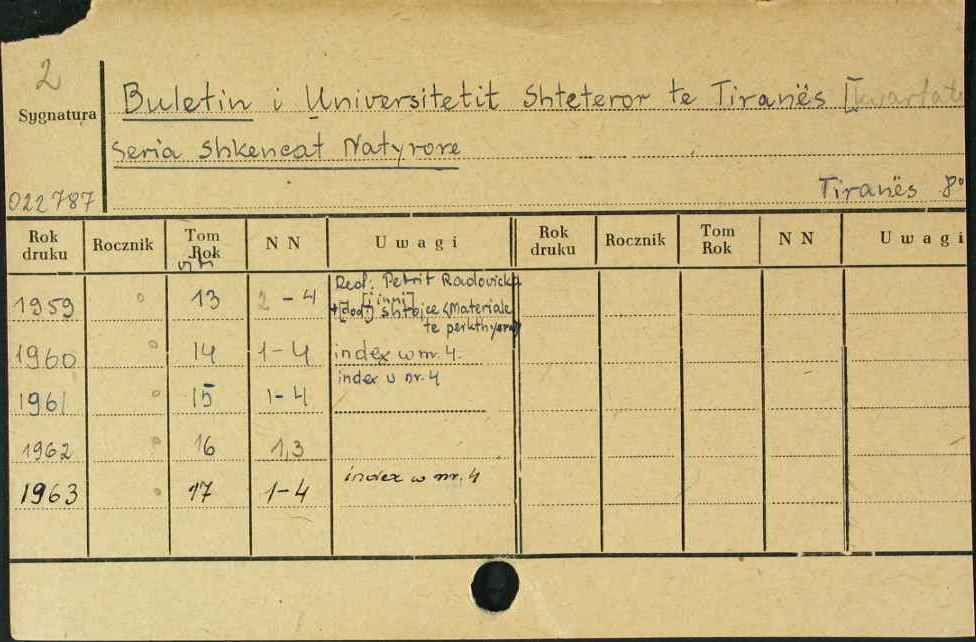 2
Sygnatura
Buletin i Universitetit Shtetëror te Tiranës [kwartal
Seria Shkencat Natyrore
022787
Tiranës 8°
Rok druku Rocznik Tom Rok N N Uwagi Rok druku Rocznik Tom Rok N N Uwagi
viti
1959 13 2-4 Red. Petrit Radovicka
[i inni]
+[dod:] Shtojce (Materiale
te perkthyera)
1960 14 1-4 index w nr. 4.
1961 15 1-4 index w nr. 4
1962 16 1,3
1963 17 1-4 index w nr. 4